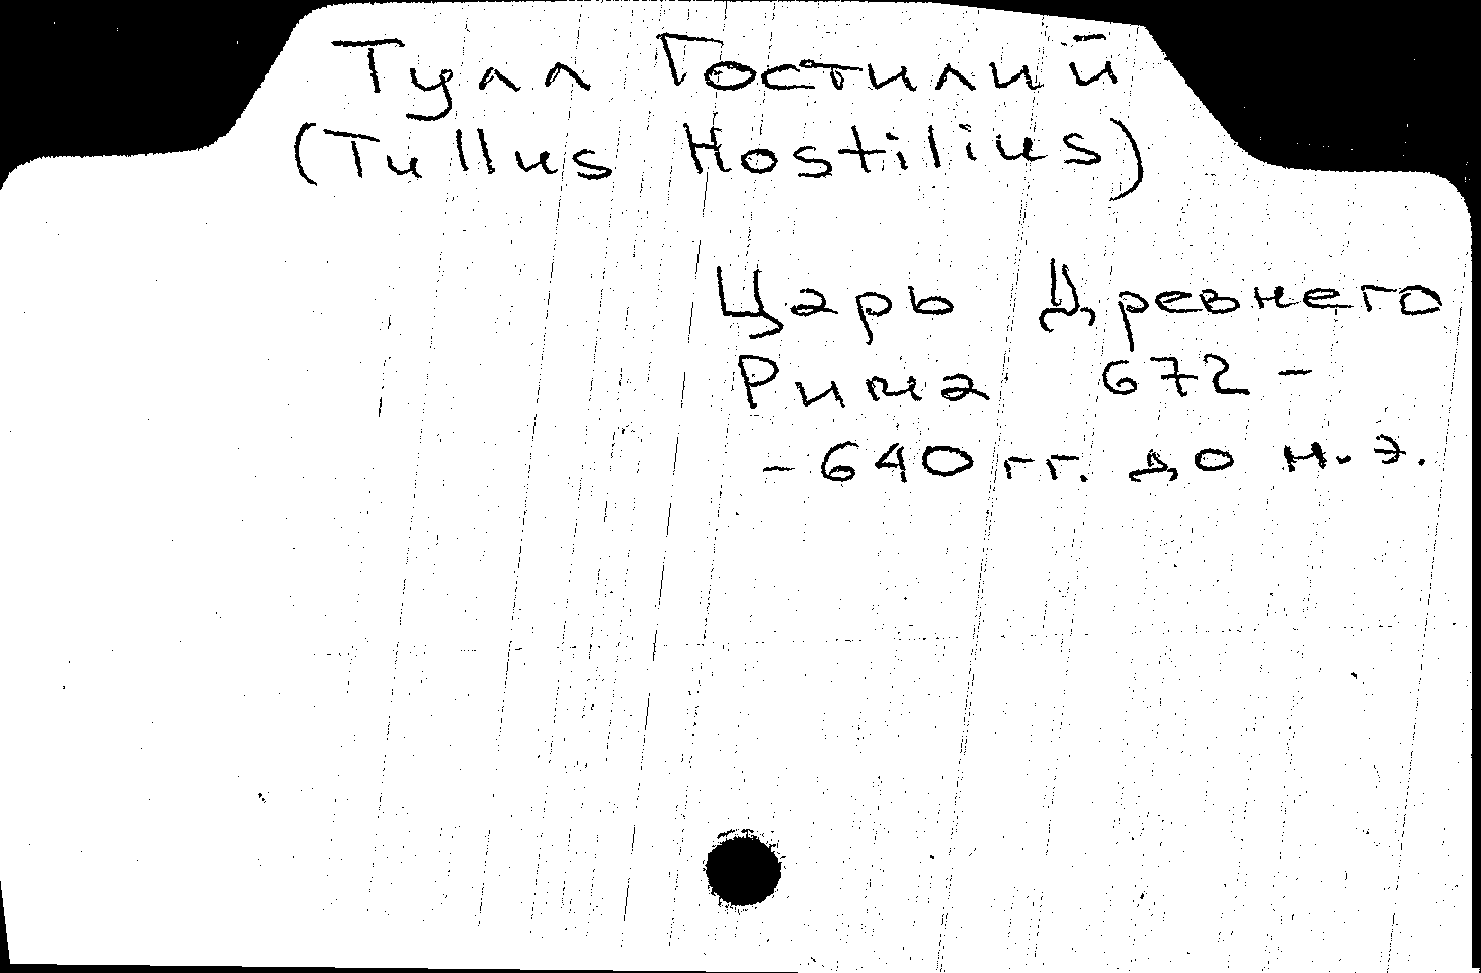 Тулл Гостилий
(Tullus Hostilius)
Царь Древнего
Рима 672 -
- 640 гг. до н. э.